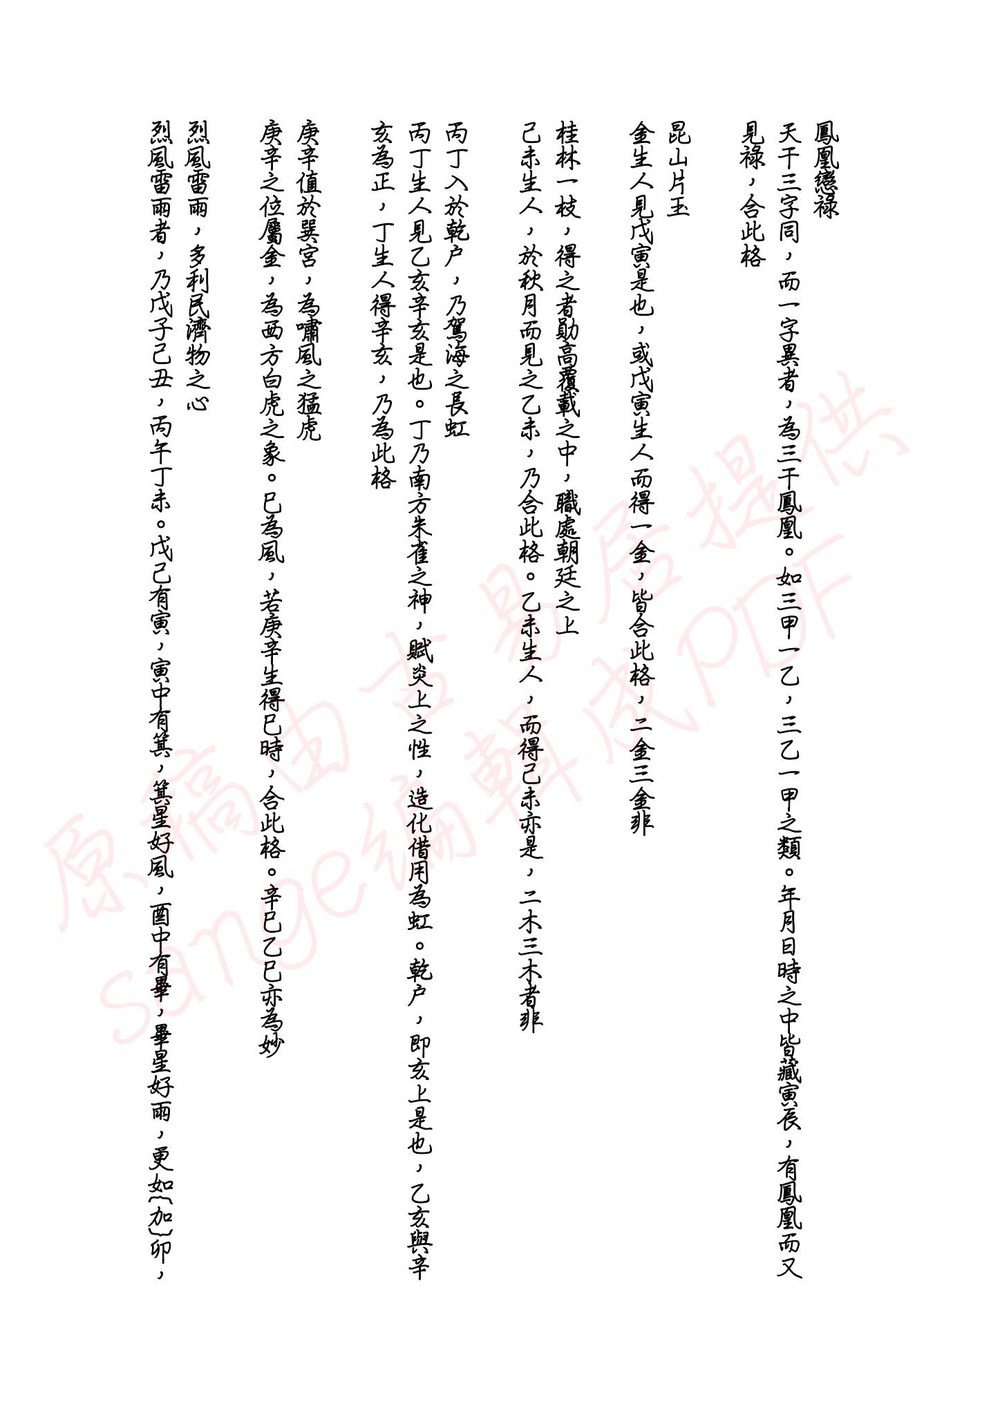 鳳凰戀祿
天干三字同，而一字異者，為三干鳳凰。如三甲一乙，三乙一甲之類。年月日時之中皆藏寅辰，有鳳凰而又
見祿，合此格
昆山片玉
金生人見戊寅是也，或戊寅生人而得一金，皆合此格，二金三金非
桂林一枝，得之者勛高覆載之中，職處朝廷之上
己未生人，於秋月而見之乙未，乃合此格。乙未生人，而得己未亦是，二木三木者非
丙丁入於乾户，乃駕海之長虹
丙丁生人見乙亥辛亥是也。丁乃南方朱雀之神，賦炎上之性，造化借用為虹。乾户，即亥上是也，乙亥與辛
亥為正，丁生人得辛亥，乃為此格
庚辛值於巽宮，為嘯風之猛虎
庚辛之位屬金，為西方白虎之象。巳為風，若庚辛生得巳時，合此格。辛巳乙巳亦為妙
烈風雷雨，多利民濟物之心
烈風雷雨者，乃戊子己丑，丙午丁未。戊己有寅，寅中有箕，箕星好風，酉中有畢，畢星好雨，更如{加}卯，
原稿由古易居提供
sange編輯成PDF